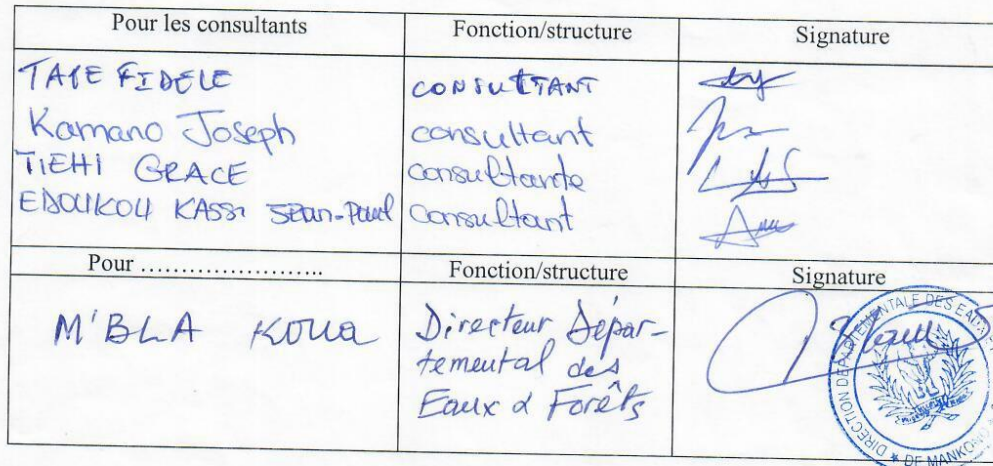 Pour les consultants Fonction/structure Signature
TAPE FIDELE CONSULTANT
Kamano Joseph consultant
TIEHI GRACE consultante
EDOUKOU KASSI Jean-Paul consultant
Pour ........................ Fonction/structure Signature
M'BLA KOUA Directeur Dépar-
temental des
Eaux & Forêts
DIRECTION DEPARTEMENTALE DES EAUX
* DE MANKONO *